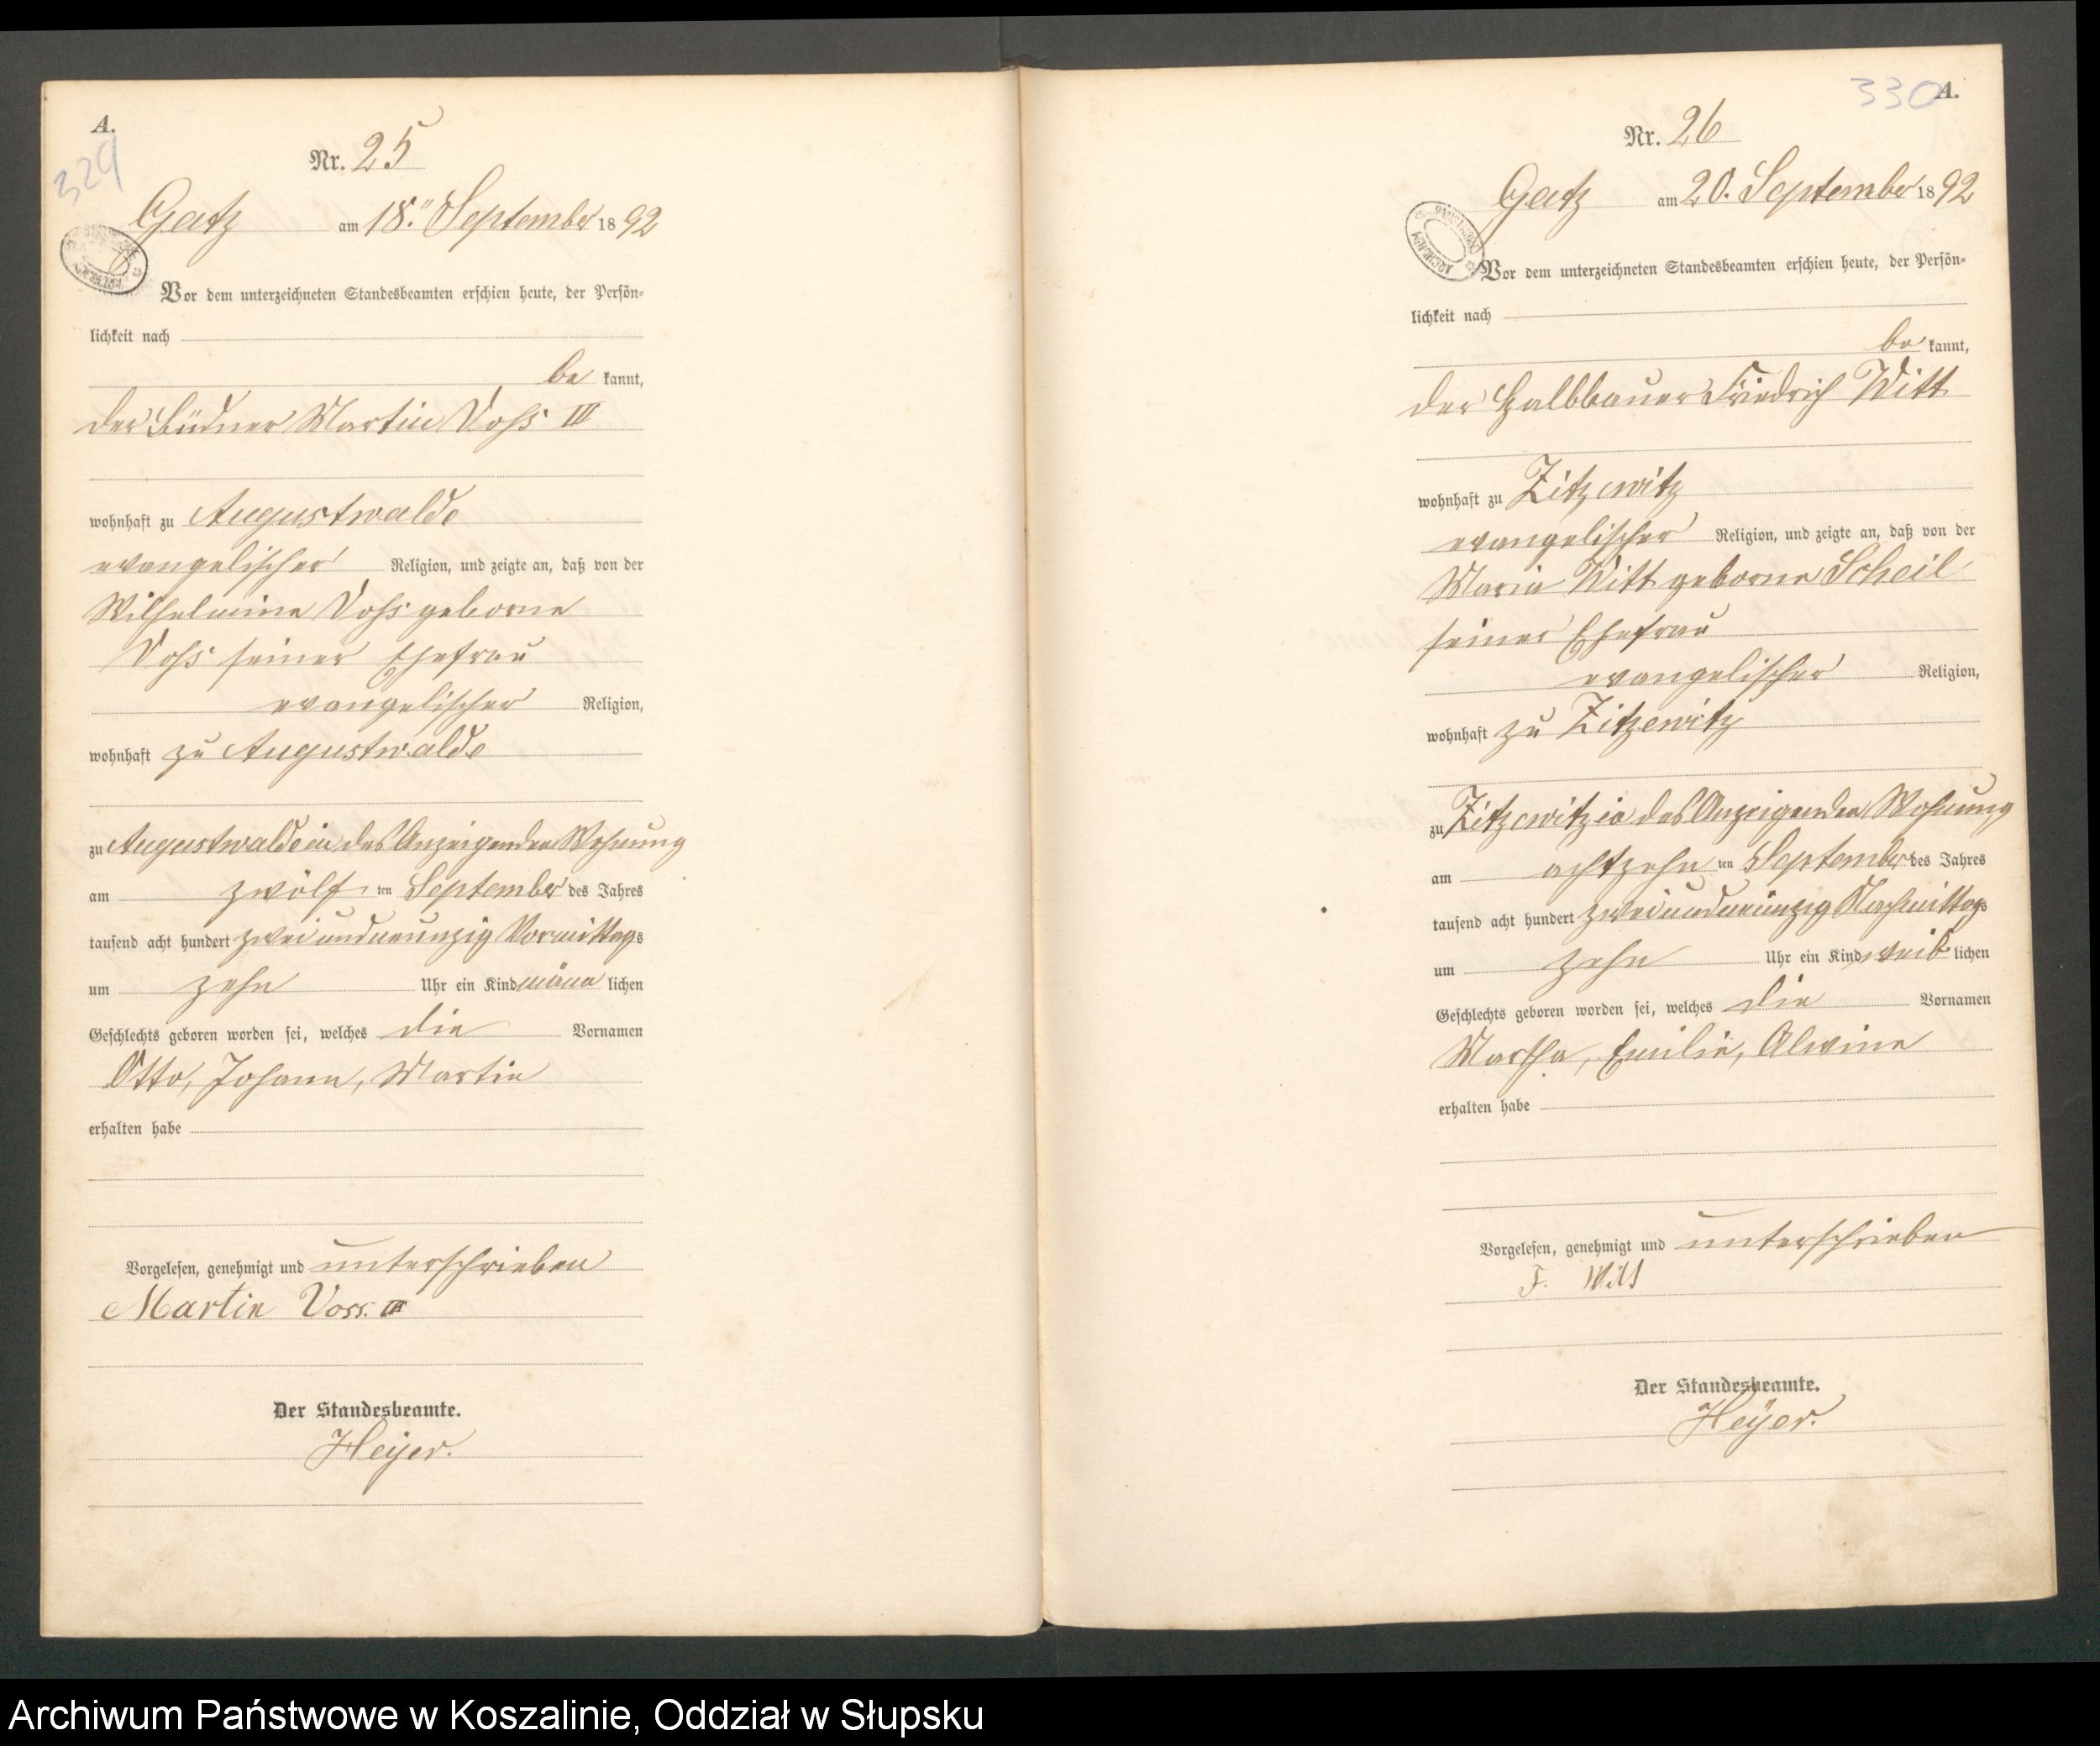 A.
329
Nr. 25
Gatz am 18. September 1892
Vor dem unterzeichneten Standesbeamten erschien heute, der Persön=
lichkeit nach
be kannt,
der Büdner Martin Voß III
wohnhaft zu Augustwalde
evangelischer Religion, und zeigte an, daß von der
Wilhelmine Voß geborne
Voß seiner Ehefrau
evangelischer Religion,
wohnhaft zu Augustwalde
zu Augustwalde in des Anzeigenden Wohnung
am zwölf ten September des Jahres
tausend acht hundert zweiundneunzig Vormittags
um zehn Uhr ein Kind männ lichen
Geschlechts geboren worden sei, welches die Vornamen
Otto, Johann, Martin
erhalten habe
Vorgelesen, genehmigt und unterschrieben
Martin Voss. III
Der Standesbeamte.
Heyer.
330
A.
Nr. 26
Gatz am 20. September 1892
Vor dem unterzeichneten Standesbeamten erschien heute, der Persön=
lichkeit nach
be kannt,
der Halbbauer Friedrich Witt
wohnhaft zu Zitzewitz
evangelischer Religion, und zeigte an, daß von der
Maria Witt geborne Scheil
seiner Ehefrau
evangelischer Religion,
wohnhaft zu Zitzewitz
zu Zitzewitz in des Anzeigenden Wohnung
am achtzehn ten September des Jahres
tausend acht hundert zweiundneunzig Nachmittags
um zehn Uhr ein Kind weib lichen
Geschlechts geboren worden sei, welches die Vornamen
Martha, Emilie, Alwine
erhalten habe
Vorgelesen, genehmigt und unterschrieben
F. Witt
Der Standesbeamte.
Heyer.
Archiwum Państwowe w Koszalinie, Oddział w Słupsku